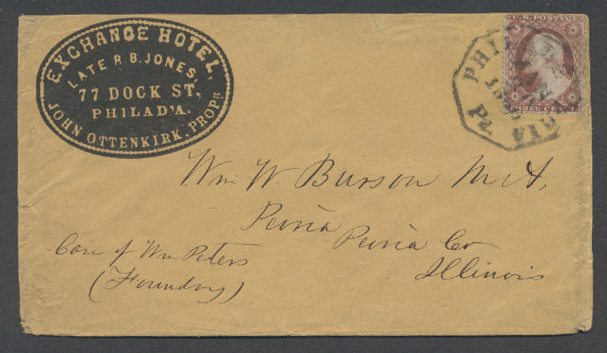 EXCHANGE HOTEL,
LATE R. B. JONES,
77 DOCK ST,
PHILAD'A.
JOHN OTTENKIRK, PROPR
U.S. POSTAGE
THREE CENTS
PHILADELPHIA
Pa.
Wm W Burson M.A,
Peoria
Peoria Co
Illinois
Care of Wm Peters
(Foundry)